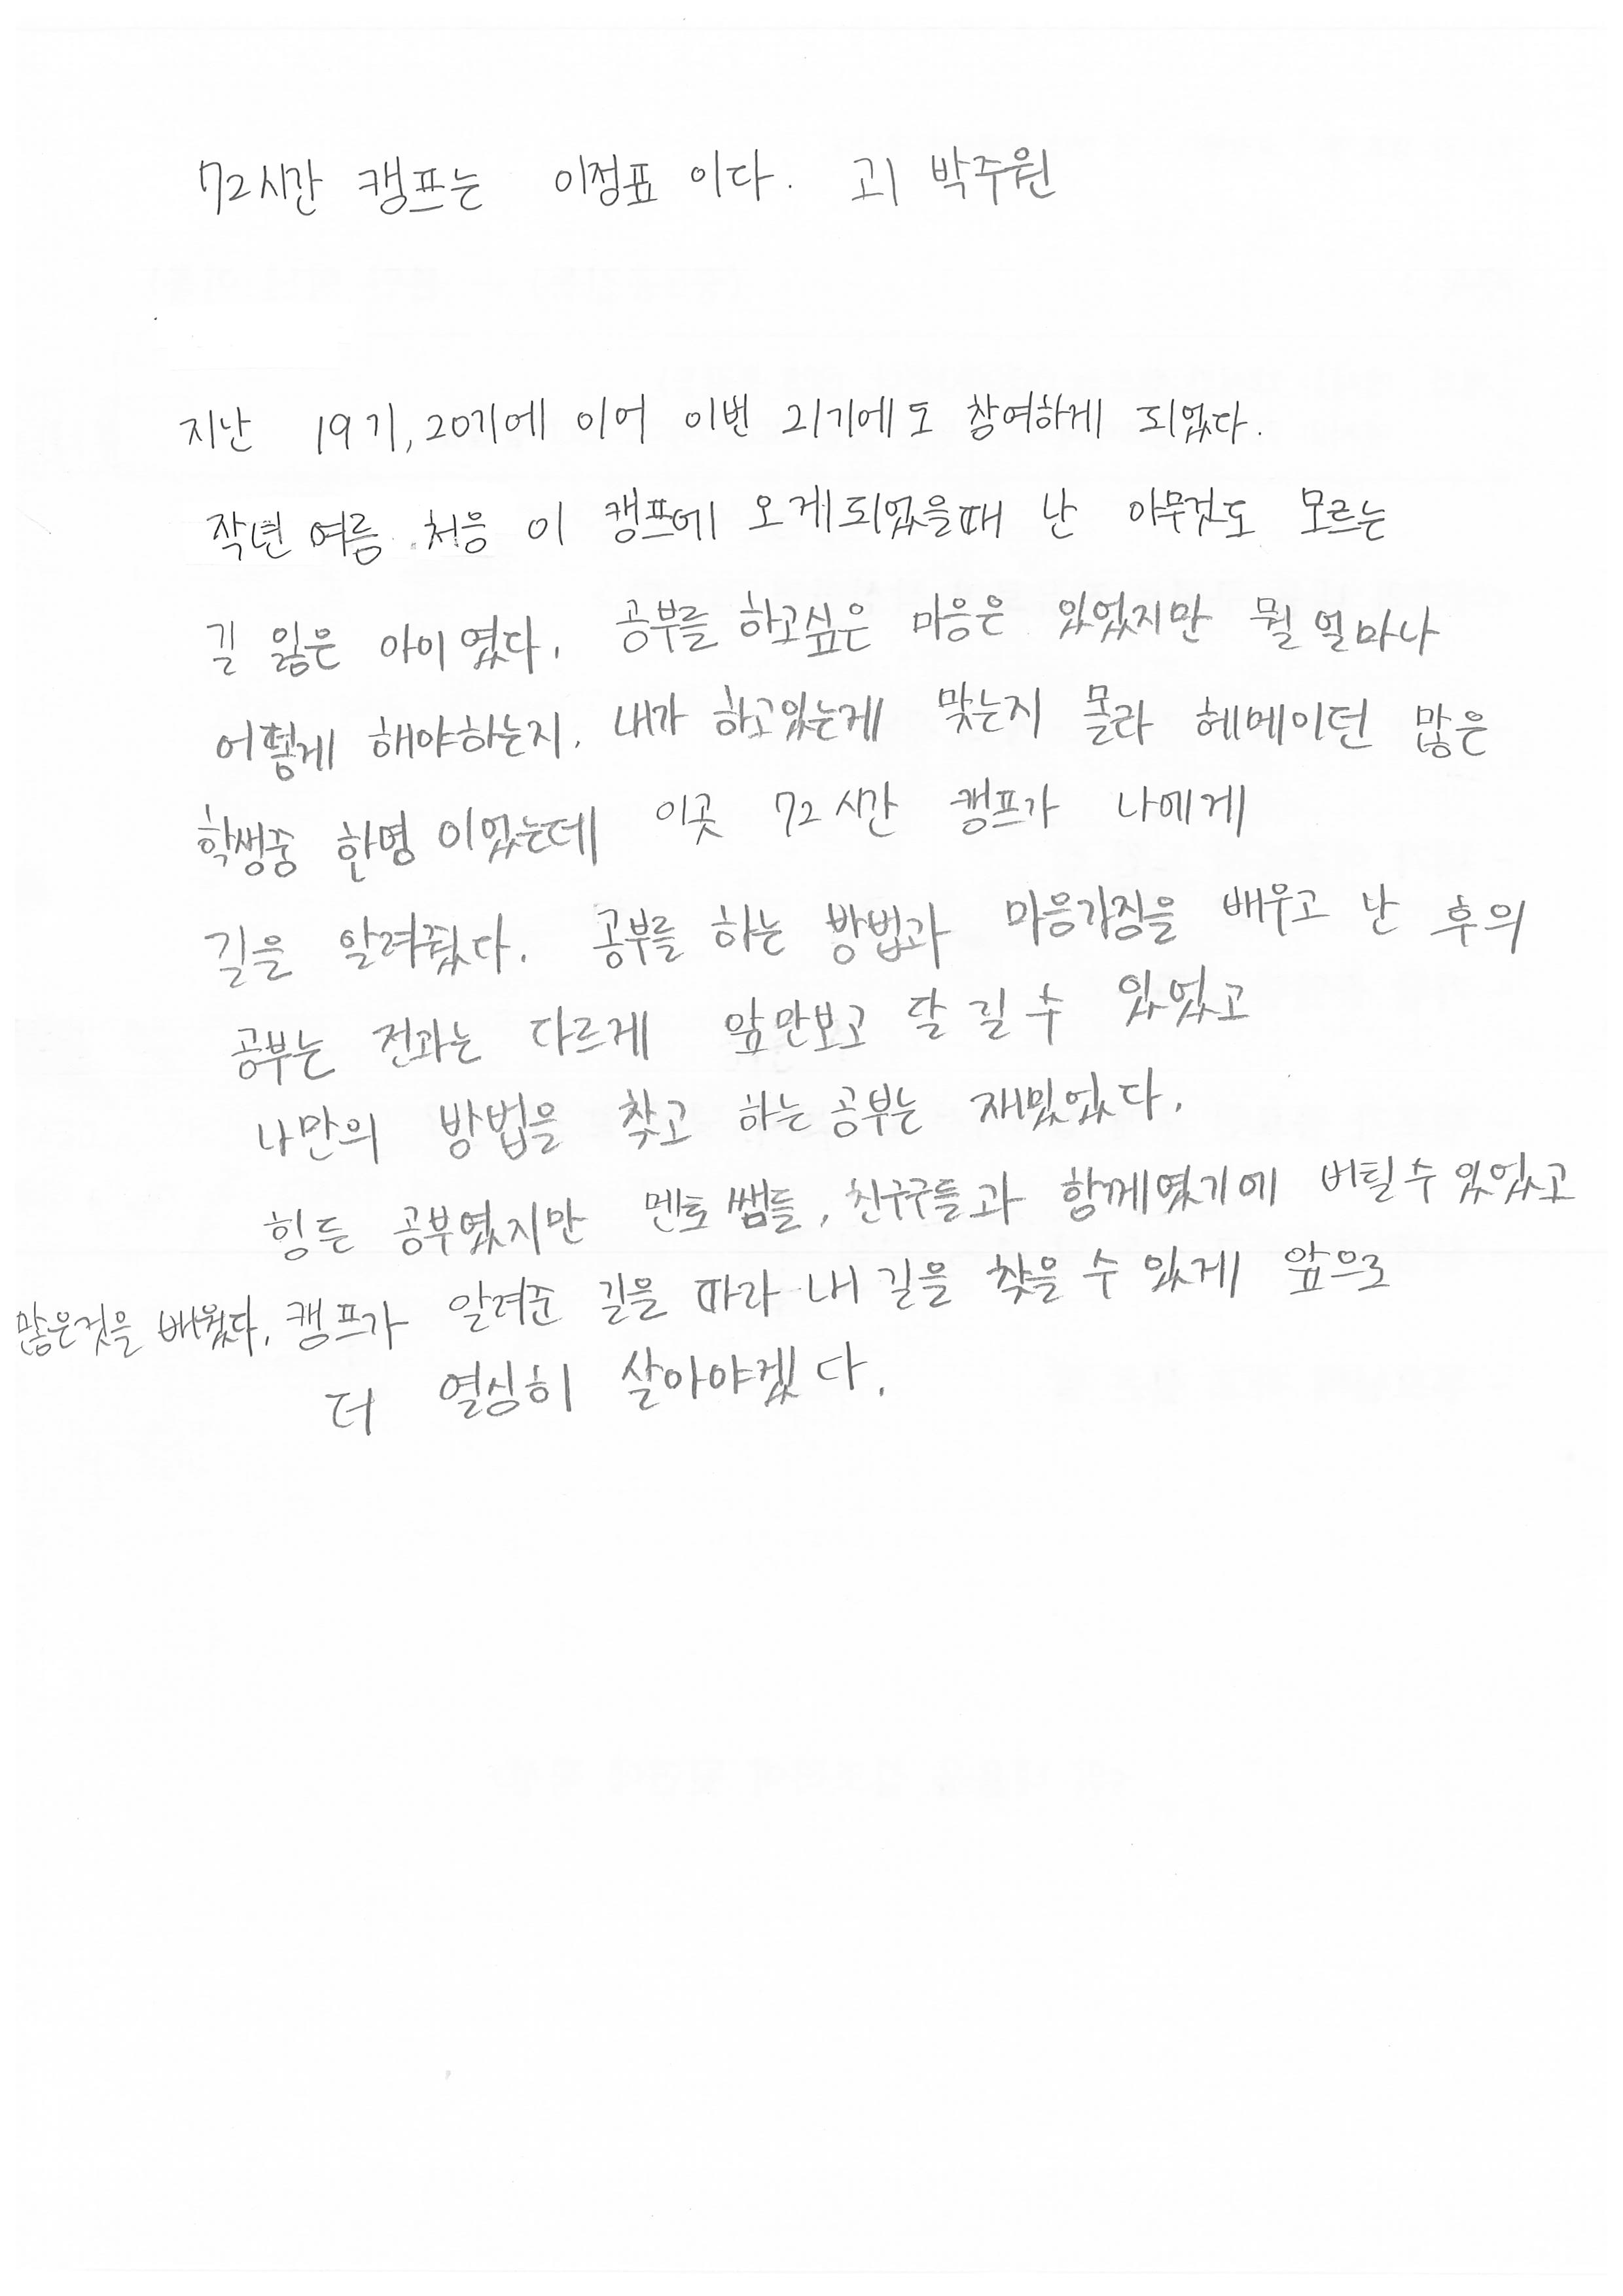 72시간 캠프는 이정표 이다. 고1 박주원
지난 19기, 20기에 이어 이번 21기에도 참여하게 되었다.
작년 여름 처음 이 캠프에 오게되었을때 난 아무것도 모르는
길 잃은 아이였다. 공부를 하고싶은 마음은 있었지만 뭘 얼마나
어떻게 해야하는지, 내가 하고있는게 맞는지 몰라 헤메이던 많은
학생중 한명 이었는데 이곳 72시간 캠프가 나에게
길을 알려줬다. 공부를 하는 방법과 마음가짐을 배우고 난 후의
공부는 전과는 다르게 앞만보고 달릴 수 있었고
나만의 방법을 찾고 하는 공부는 재밌었다.
힘든 공부였지만 멘토쌤들, 친구들과 함께였기에 버틸 수 있었고
많은것을 배웠다. 캠프가 알려준 길을 따라 내 길을 찾을 수 있게 앞으로
더 열심히 살아야겠다.